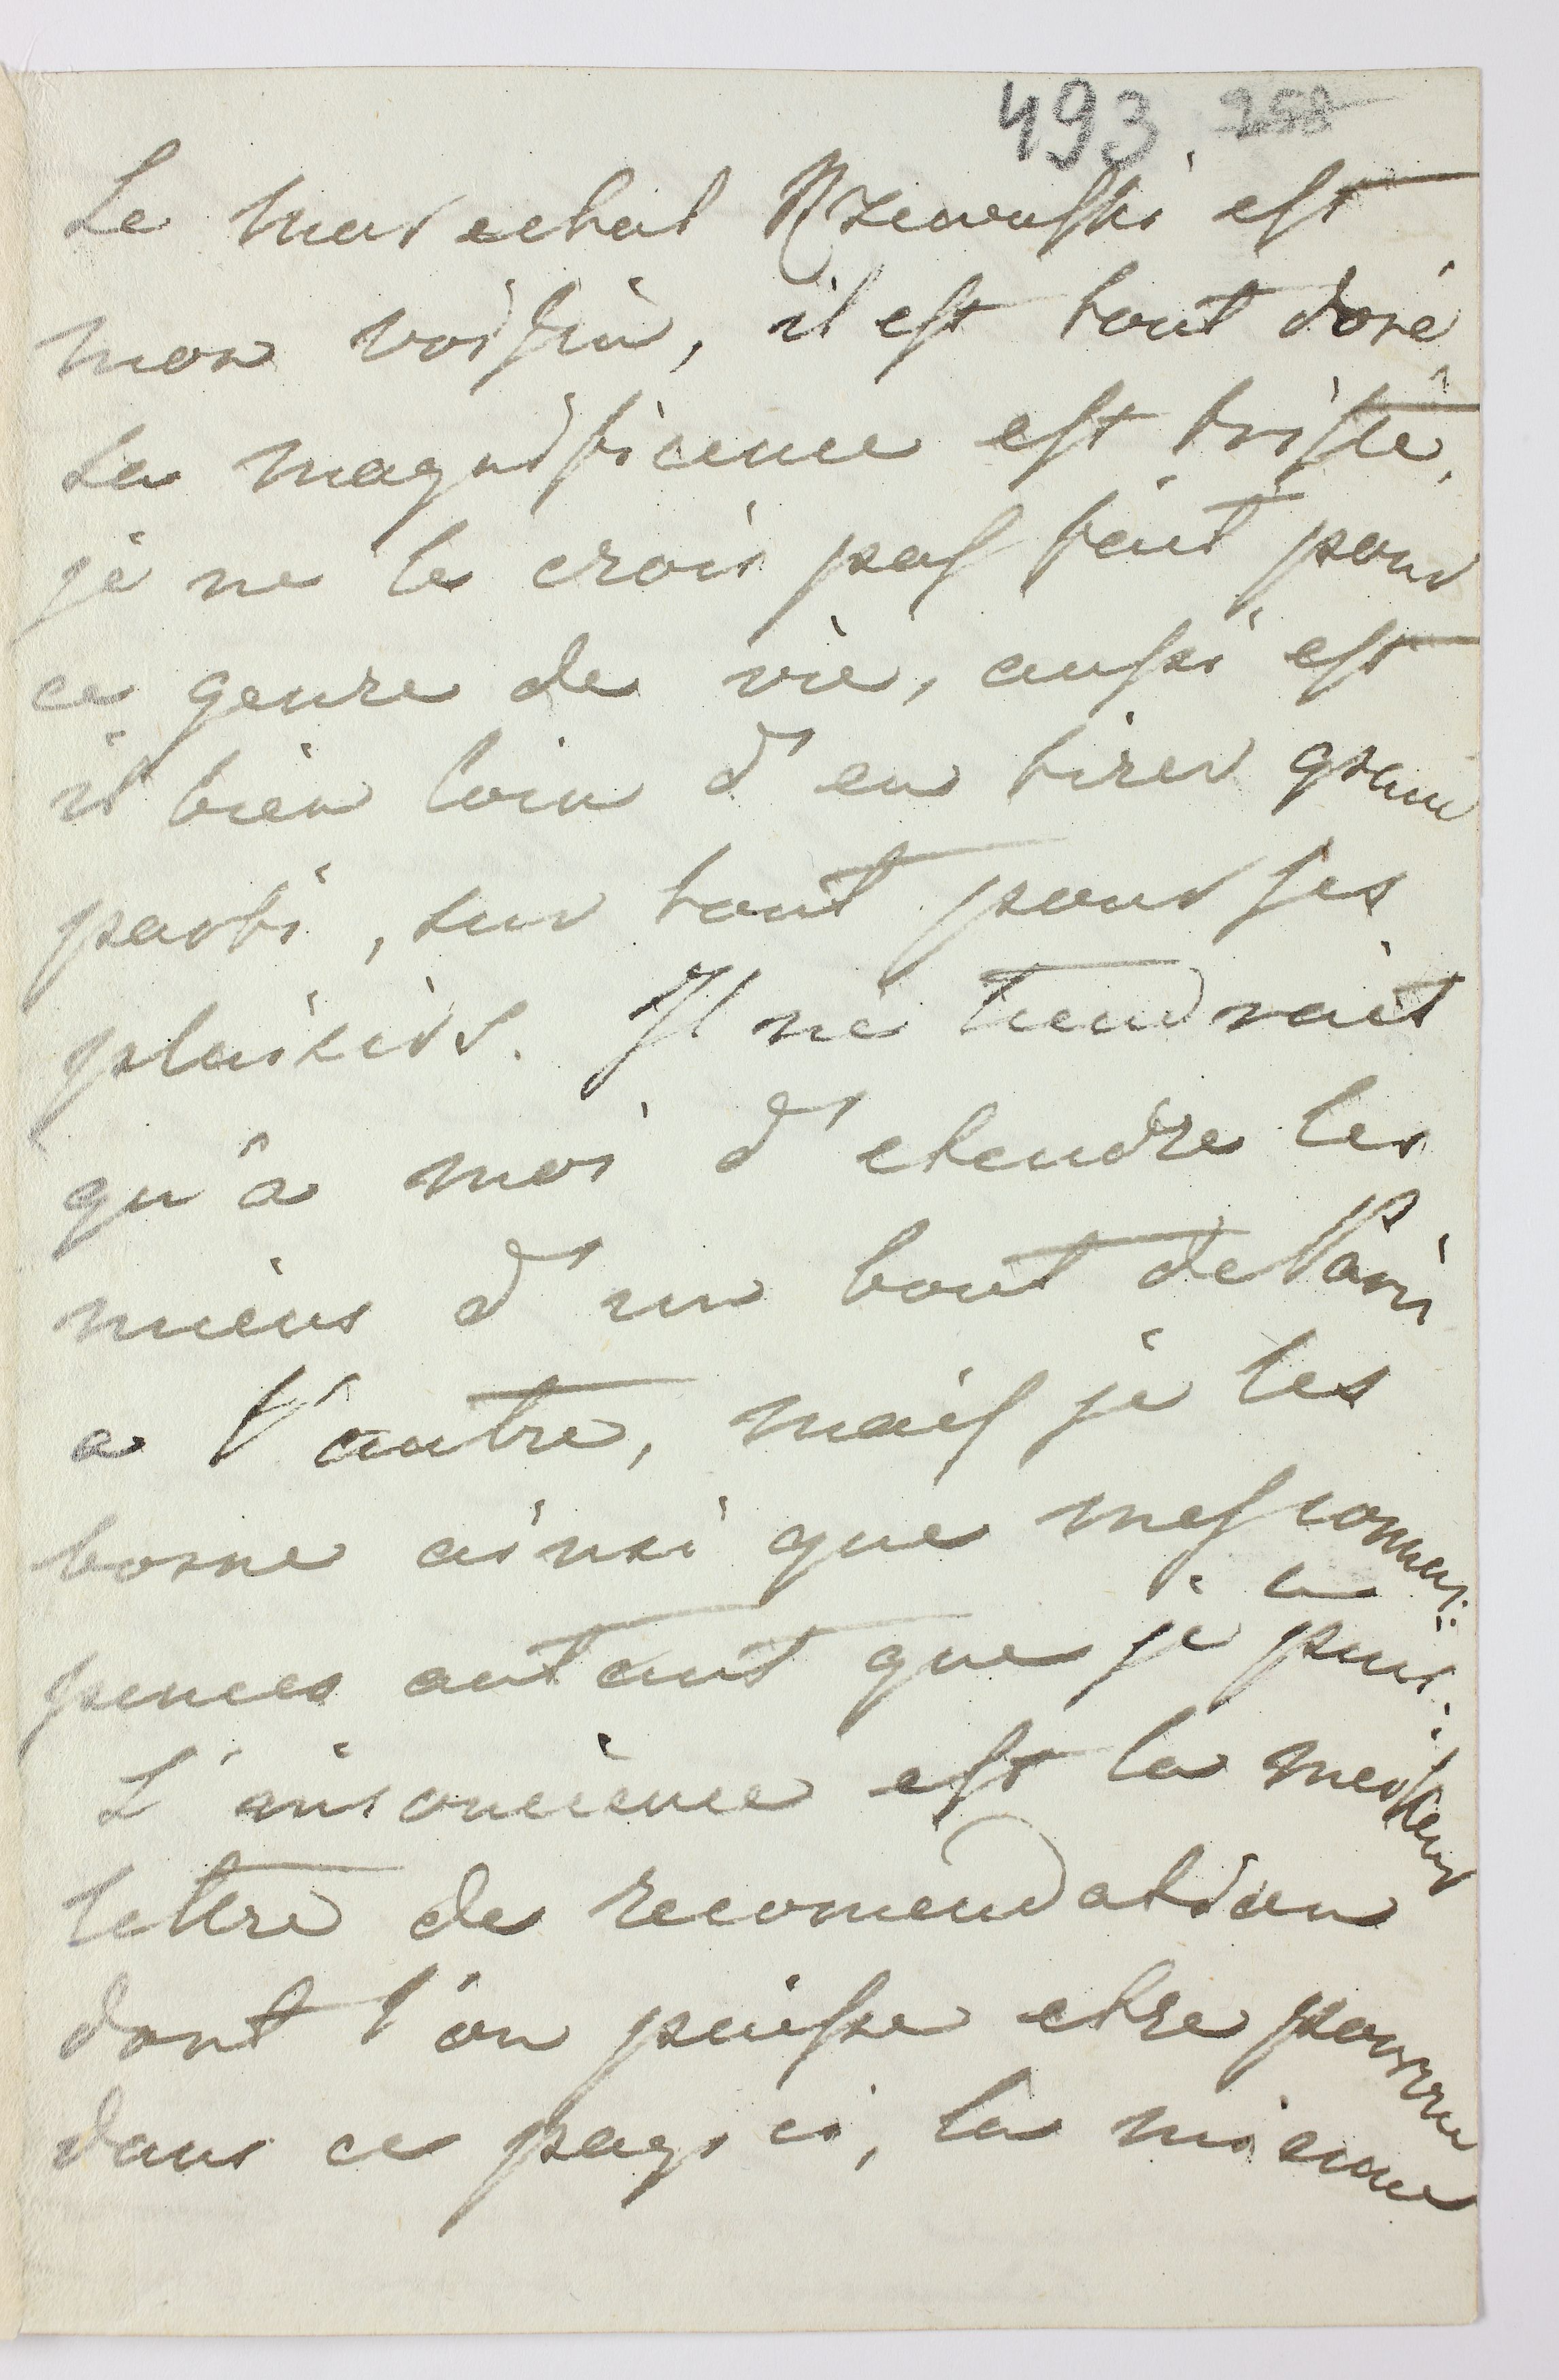 493. 258
Le marechal Rzewuski est
mon voisin, il est tout doré
La magnificence est triste,
je ne le crois pas fait pour
ce genre de vie, aussi est
il bien loin d'en tirer grand
parti, sur tout pour ses
plaisirs. Il ne tiendroit
qu'à moi d'etendre les
miens d'un bout de Paris
a l'autre, mais je les
borne ainsi que mes connois:
sences autant que je le puis.
L'insoucience est la meilleur
lettre de recomendation
dont l'on puisse etre pourvu
dans ce pays ci, la mienne